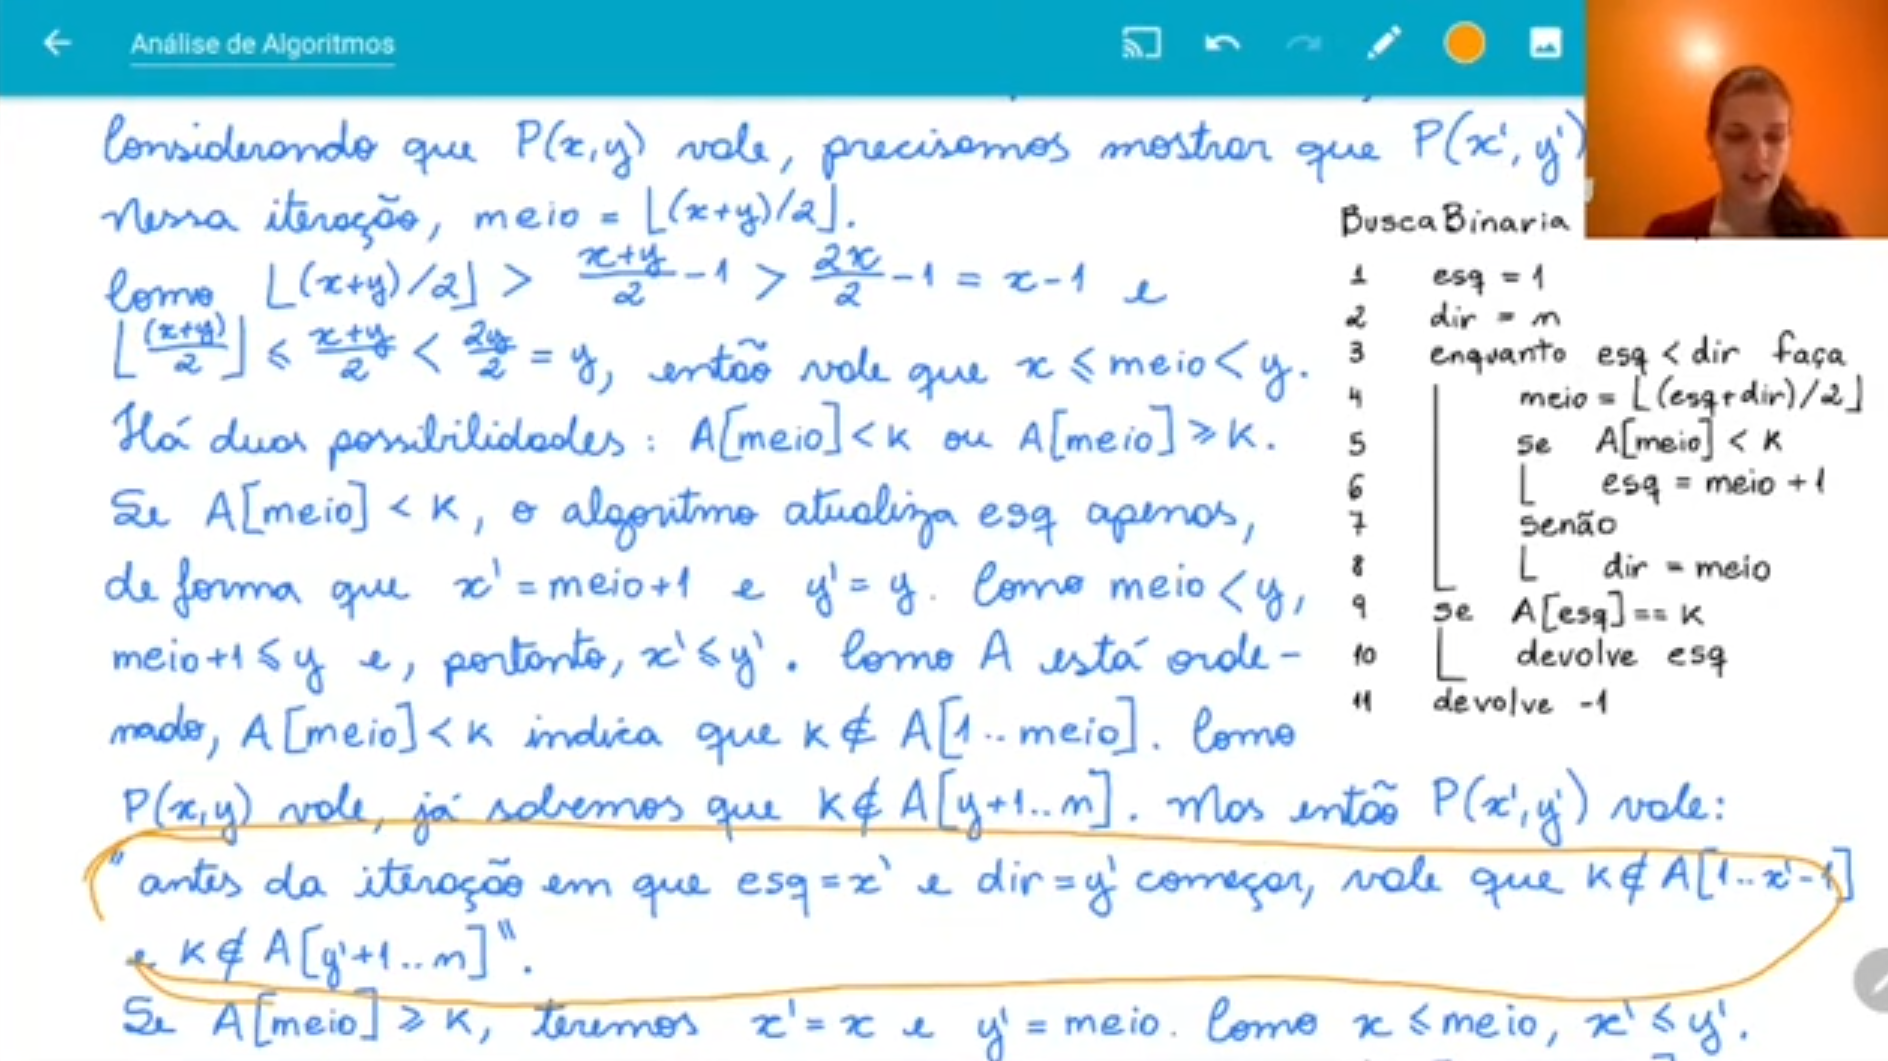 Análise de Algoritmos
Considerando que P(x,y) vale, precisamos mostrar que P(x',y')
Nessa iteração, meio = ⌊(x+y)/2⌋.
Como ⌊(x+y)/2⌋ > (x+y)/2 - 1 > 2x/2 - 1 = x-1 e
⌊(x+y)/2⌋ ≤ (x+y)/2 < 2y/2 = y, então vale que x ≤ meio < y.
Há duas possibilidades: A[meio] < K ou A[meio] ≥ K.
Se A[meio] < K, o algoritmo atualiza esq apenas,
de forma que x' = meio+1 e y' = y. Como meio < y,
meio+1 ≤ y e, portanto, x' ≤ y'. Como A está orde-
nado, A[meio] < K indica que K ∉ A[1..meio]. Como
P(x,y) vale, já sabemos que K ∉ A[y+1..n]. Mas então P(x',y') vale:
"antes da iteração em que esq = x' e dir = y' começar, vale que K ∉ A[1..x'-1]
e K ∉ A[y'+1..n]".
Se A[meio] ≥ K, teremos x' = x e y' = meio. Como x ≤ meio, x' ≤ y'.
BuscaBinaria
1 esq = 1
2 dir = n
3 enquanto esq < dir faça
4 meio = ⌊(esq+dir)/2⌋
5 se A[meio] < K
6 esq = meio + 1
7 senão
8 dir = meio
9 se A[esq] == K
10 devolve esq
11 devolve -1